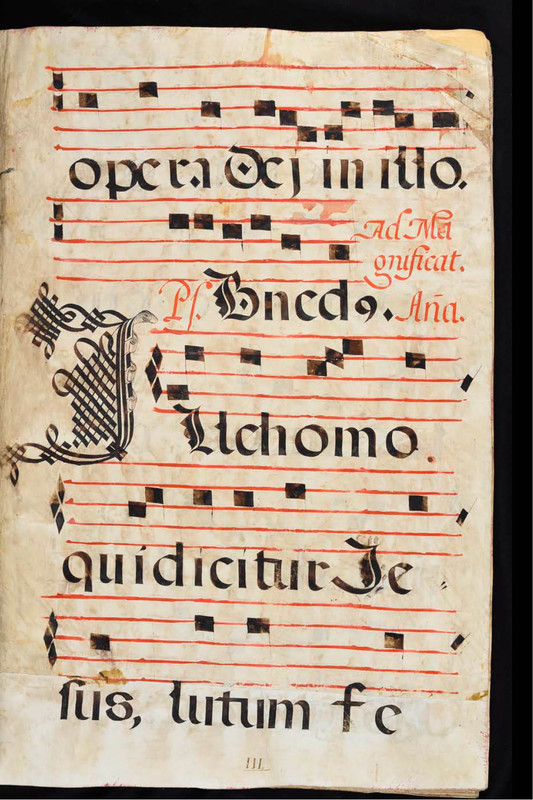 opera Dej in illo.
Ad Ma
gnificat.
Ps. Bnedꝯ. Aña.
Ille homo.
qui dicitur Je
sus, lutum fe
III.